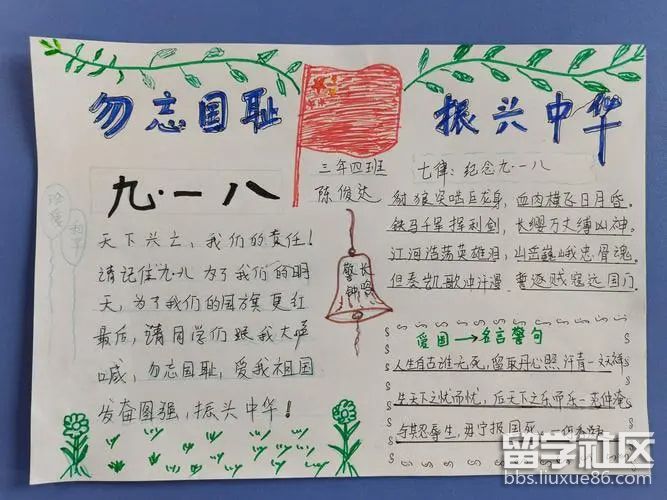 勿忘国耻
振兴中华
三年四班
陈俊达
九·一八
珍爱
和平
天下兴亡，我们的责任！
请记住九·八 为了我们的明
天，为了我们的国旗更红
最后，请同学们跟我大声
喊，勿忘国耻，爱我祖国
发奋图强，振兴中华！
长鸣
警钟
七律：纪念九·一八
豺狼突啮巨龙身，血肉横飞日月昏。
铁马千军挥利剑，长缨万丈缚凶神。
江河浩荡英雄泪，山峦巍峨忠骨魂。
但奏凯歌冲汗漫 誓逐贼寇远国门
爱国→名言警句
人生自古谁无死，留取丹心照汗青—文天祥
先天下之忧而忧，后天下之乐而乐—范仲淹
与其忍辱生，毋宁报国死
留学社区
bbs.liuxue86.com